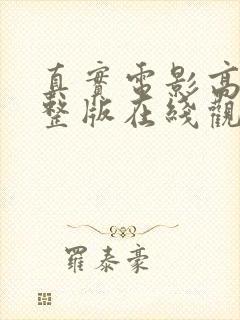 真實電影高
整版在綫觀
羅泰豪